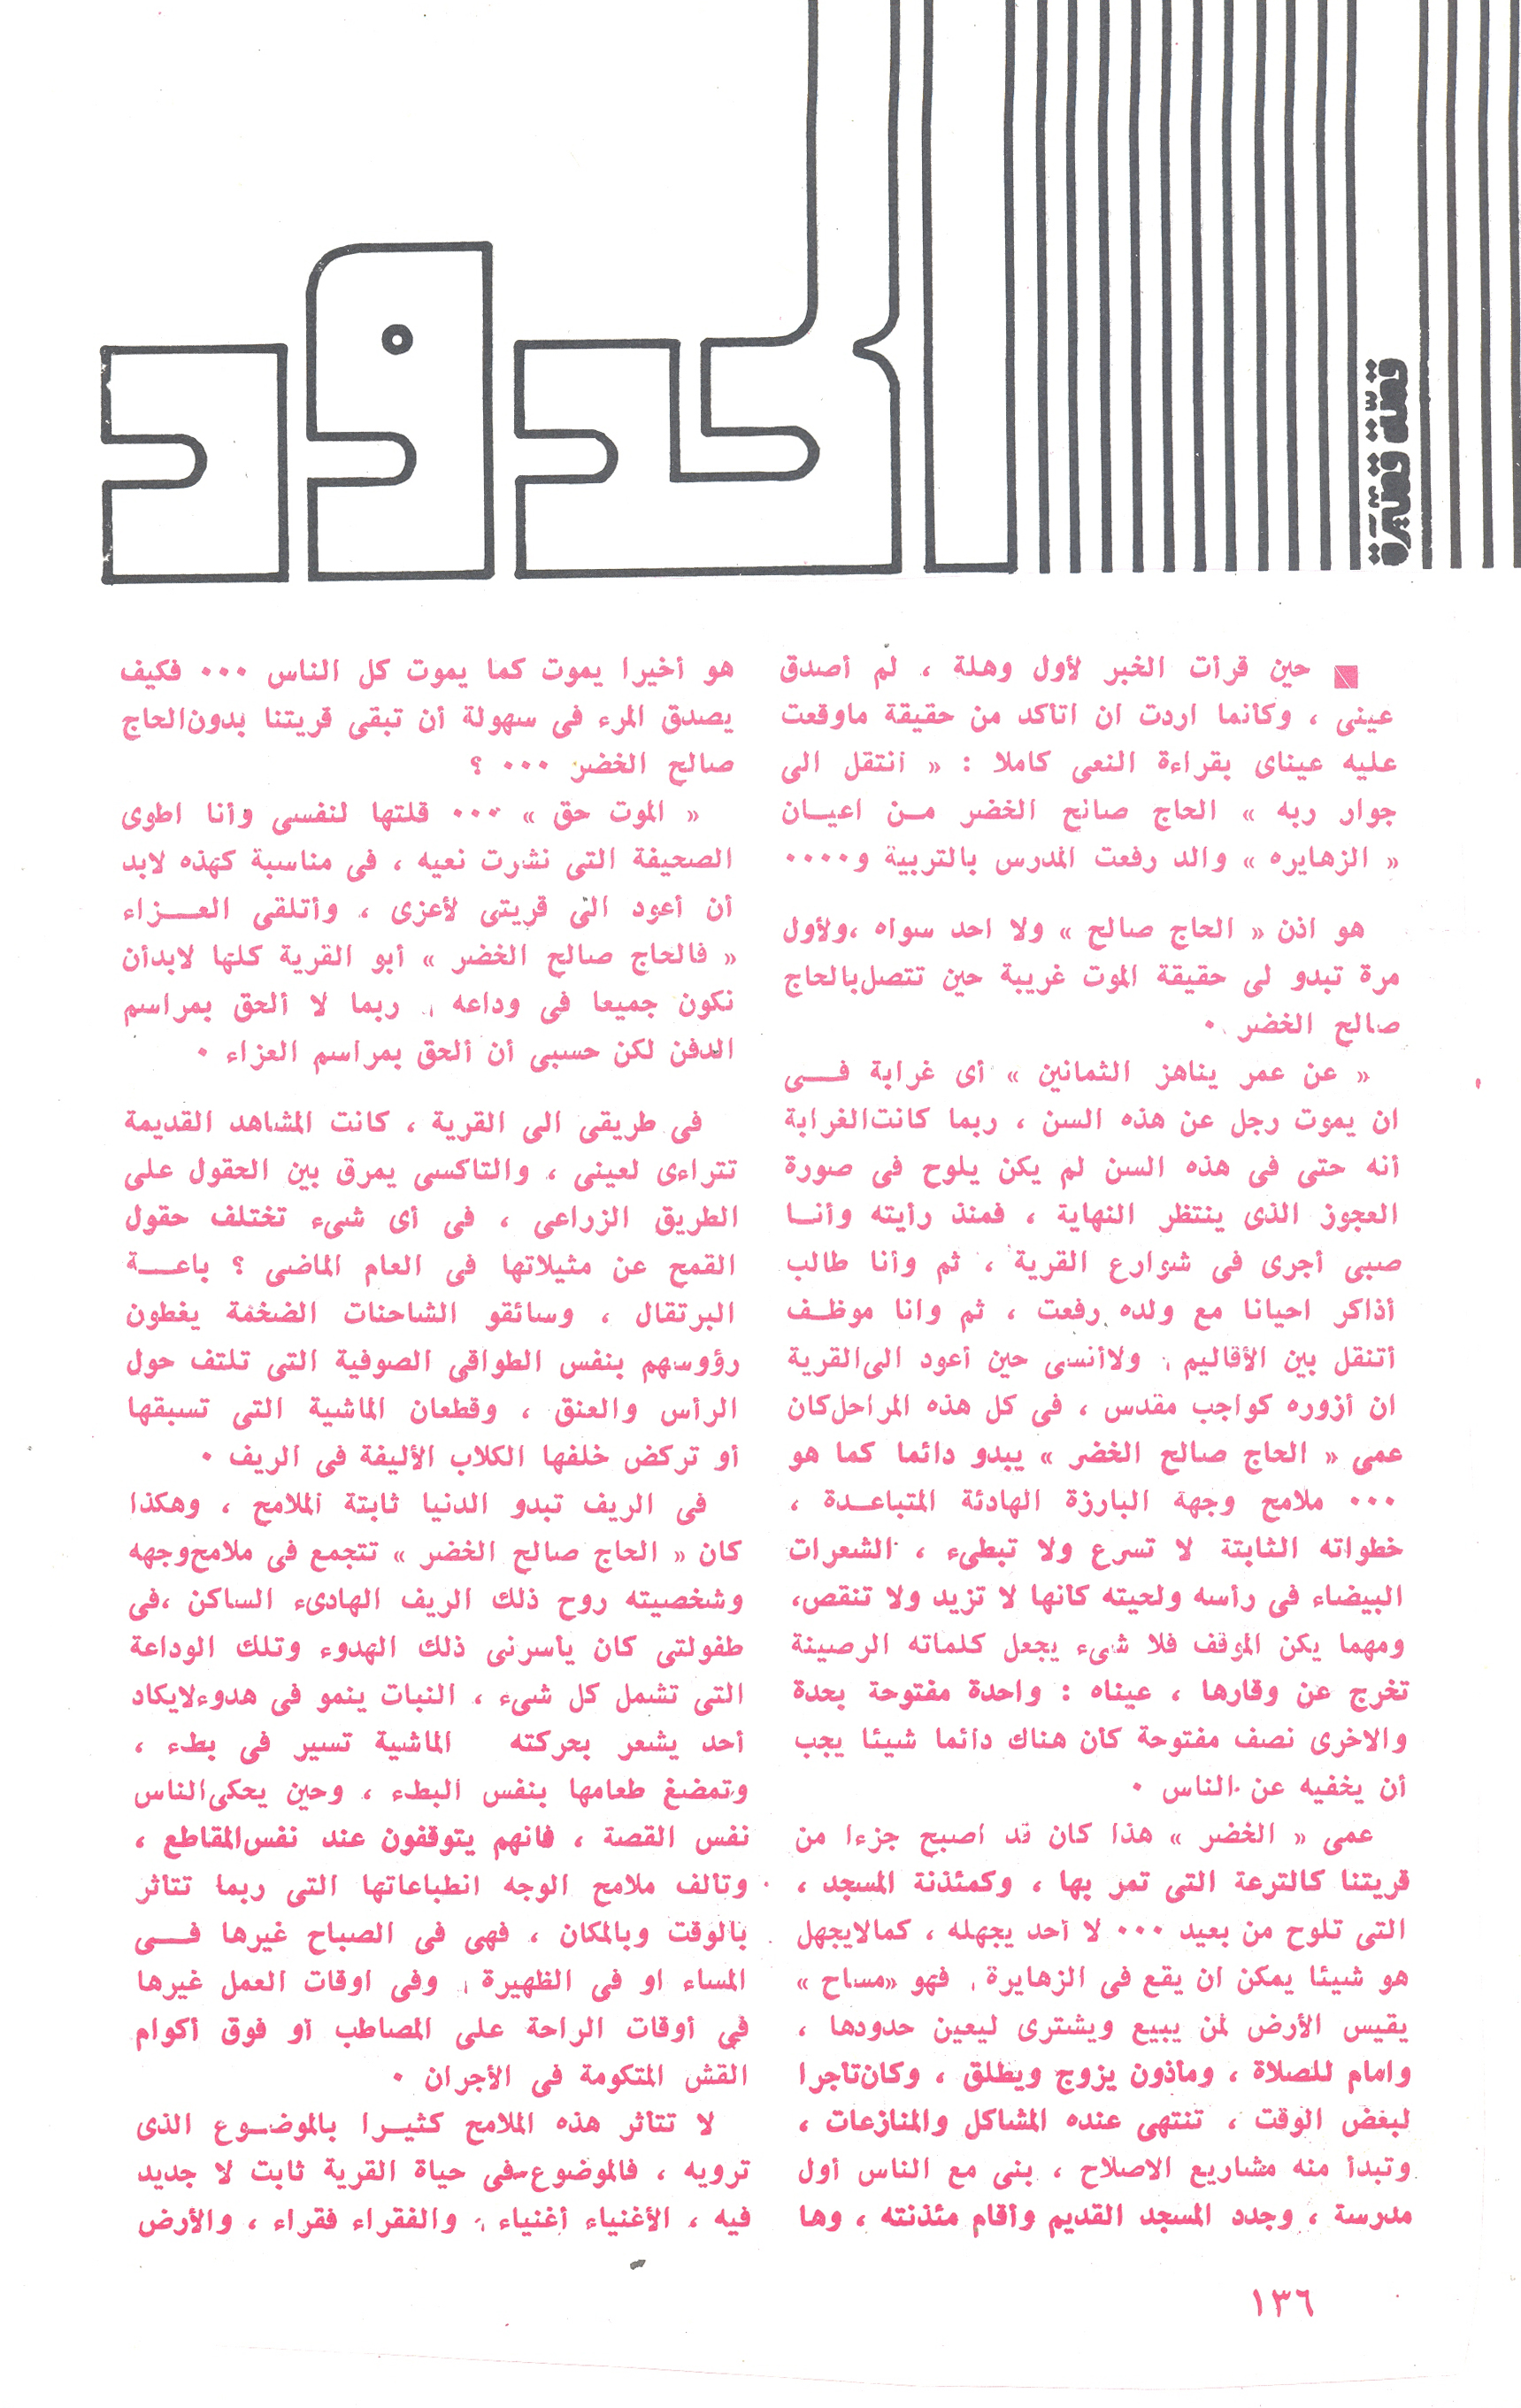 الحدود
قصة قصيرة
حين قرأت الخبر لأول وهلة ، لم أصدق
عينى ، وكأنما اردت ان اتأكد من حقيقة ماوقعت
عليه عيناى بقراءة النعى كاملا : « انتقل الى
جوار ربه » الحاج صالح الخضر مـن اعيـان
« الزهايره » والد رفعت المدرس بالتربية و٠٠٠٠
هو اذن « الحاج صالح » ولا احد سواه ،ولأول
مرة تبدو لى حقيقة الموت غريبة حين تتصل بالحاج
صالح الخضر ٠
« عن عمر يناهز الثمانين » أى غرابة فـــى
ان يموت رجل عن هذه السن ، ربما كانت الغرابة
أنه حتى فى هذه السن لم يكن يلوح فى صورة
العجوز الذى ينتظر النهاية ، فمنذ رأيته وأنـا
صبى أجرى فى شوارع القرية ، ثم وأنا طالب
أذاكر احيانا مع ولده رفعت ، ثم وانا موظـف
أتنقل بين الأقاليم ، ولاأنسى حين أعود الى القرية
ان أزوره كواجب مقدس ، فى كل هذه المراحل كان
عمى « الحاج صالح الخضر » يبدو دائما كما هو
٠٠٠ ملامح وجهه البارزة الهادئة المتباعـدة ،
خطواته الثابتة لا تسرع ولا تبطىء ، الشعرات
البيضاء فى رأسه ولحيته كانها لا تزيد ولا تنقص،
ومهما يكن الموقف فلا شىء يجعل كلماته الرصينة
تخرج عن وقارها ، عيناه : واحدة مفتوحة بحدة
والاخرى نصف مفتوحة كأن هناك دائما شيئا يجب
أن يخفيه عن الناس ٠
عمى « الخضر » هذا كان قد اصبح جزءا من
قريتنا كالترعة التى تمر بها ، وكمئذنة المسجد ،
التى تلوح من بعيد ٠٠٠ لا أحد يجهله ، كمالايجهل
هو شيئا يمكن ان يقع فى الزهايرة ، فهو «مساح»
يقيس الأرض لمن يبيع ويشترى ليعين حدودها ،
وامام للصلاة ، ومأذون يزوج ويطلق ، وكان تاجرا
لبعض الوقت ، تنتهى عنده المشاكل والمنازعات ،
وتبدأ منه مشاريع الاصلاح ، بنى مع الناس أول
مدرسة ، وجدد المسجد القديم وأقام مئذنته ، وها
هو أخيرا يموت كما يموت كل الناس ٠٠٠ فكيف
يصدق المرء فى سهولة أن تبقى قريتنا بدون الحاج
صالح الخضر ٠٠٠ ؟
« الموت حق » ٠٠٠ قلتها لنفسى وأنا اطوى
الصحيفة التى نشرت نعيه ، فى مناسبة كهذه لابد
أن أعود الى قريتى لأعزى ، وأتلقى العـــزاء
« فالحاج صالح الخضر » أبو القرية كلها لابدأن
نكون جميعا فى وداعه ، ربما لا ألحق بمراسم
الدفن لكن حسبى أن ألحق بمراسم العزاء ٠
فى طريقى الى القرية ، كانت المشاهد القديمة
تتراءى لعينى ، والتاكسى يمرق بين الحقول على
الطريق الزراعى ، فى أى شىء تختلف حقول
القمح عن مثيلاتها فى العام الماضى ؟ باعـــة
البرتقال ، وسائقو الشاحنات الضخمة يغطون
رؤوسهم بنفس الطواقى الصوفية التى تلتف حول
الرأس والعنق ، وقطعان الماشية التى تسبقها
أو تركض خلفها الكلاب الأليفة فى الريف ٠
فى الريف تبدو الدنيا ثابتة الملامح ، وهكذا
كان « الحاج صالح الخضر » تتجمع فى ملامح وجهه
وشخصيته روح ذلك الريف الهادىء الساكن ،فى
طفولتى كان يأسرنى ذلك الهدوء وتلك الوداعة
التى تشمل كل شىء ، النبات ينمو فى هدوء لايكاد
أحد يشعر بحركته الماشية تسير فى بطء ،
وتمضغ طعامها بنفس البطء ، وحين يحكى الناس
نفس القصة ، فانهم يتوقفون عند نفس المقاطع ،
وتألف ملامح الوجه انطباعاتها التى ربما تتأثر
بالوقت وبالمكان ، فهى فى الصباح غيرها فـــى
المساء او فى الظهيرة ، وفى اوقات العمل غيرها
فى أوقات الراحة على المصاطب أو فوق أكوام
القش المتكومة فى الأجران ٠
لا تتأثر هذه الملامح كثيـرا بالموضـوع الذى
ترويه ، فالموضوع فى حياة القرية ثابت لا جديد
فيه ، الأغنياء أغنياء ، والفقراء فقراء ، والأرض
١٣٦